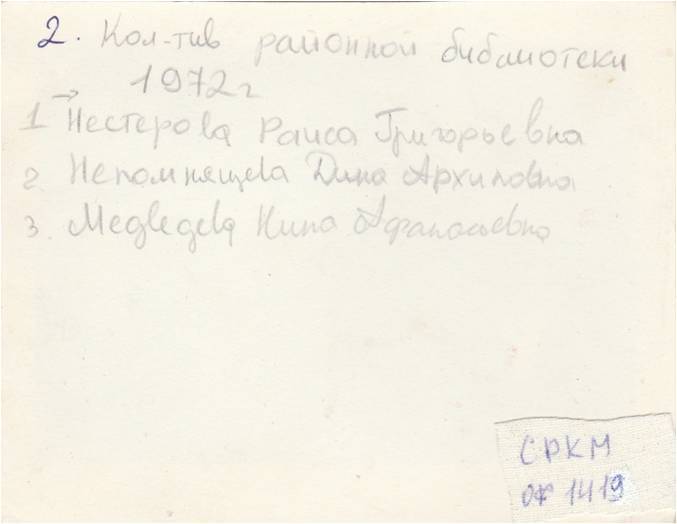 2. Кол-тив районной библиотеки
1972 г
→
1 Нестерова Раиса Григорьевна
2. Непомнящева Дина Архиповна
3. Медведева Нина Афанасьевна
СРКМ
оф 1419